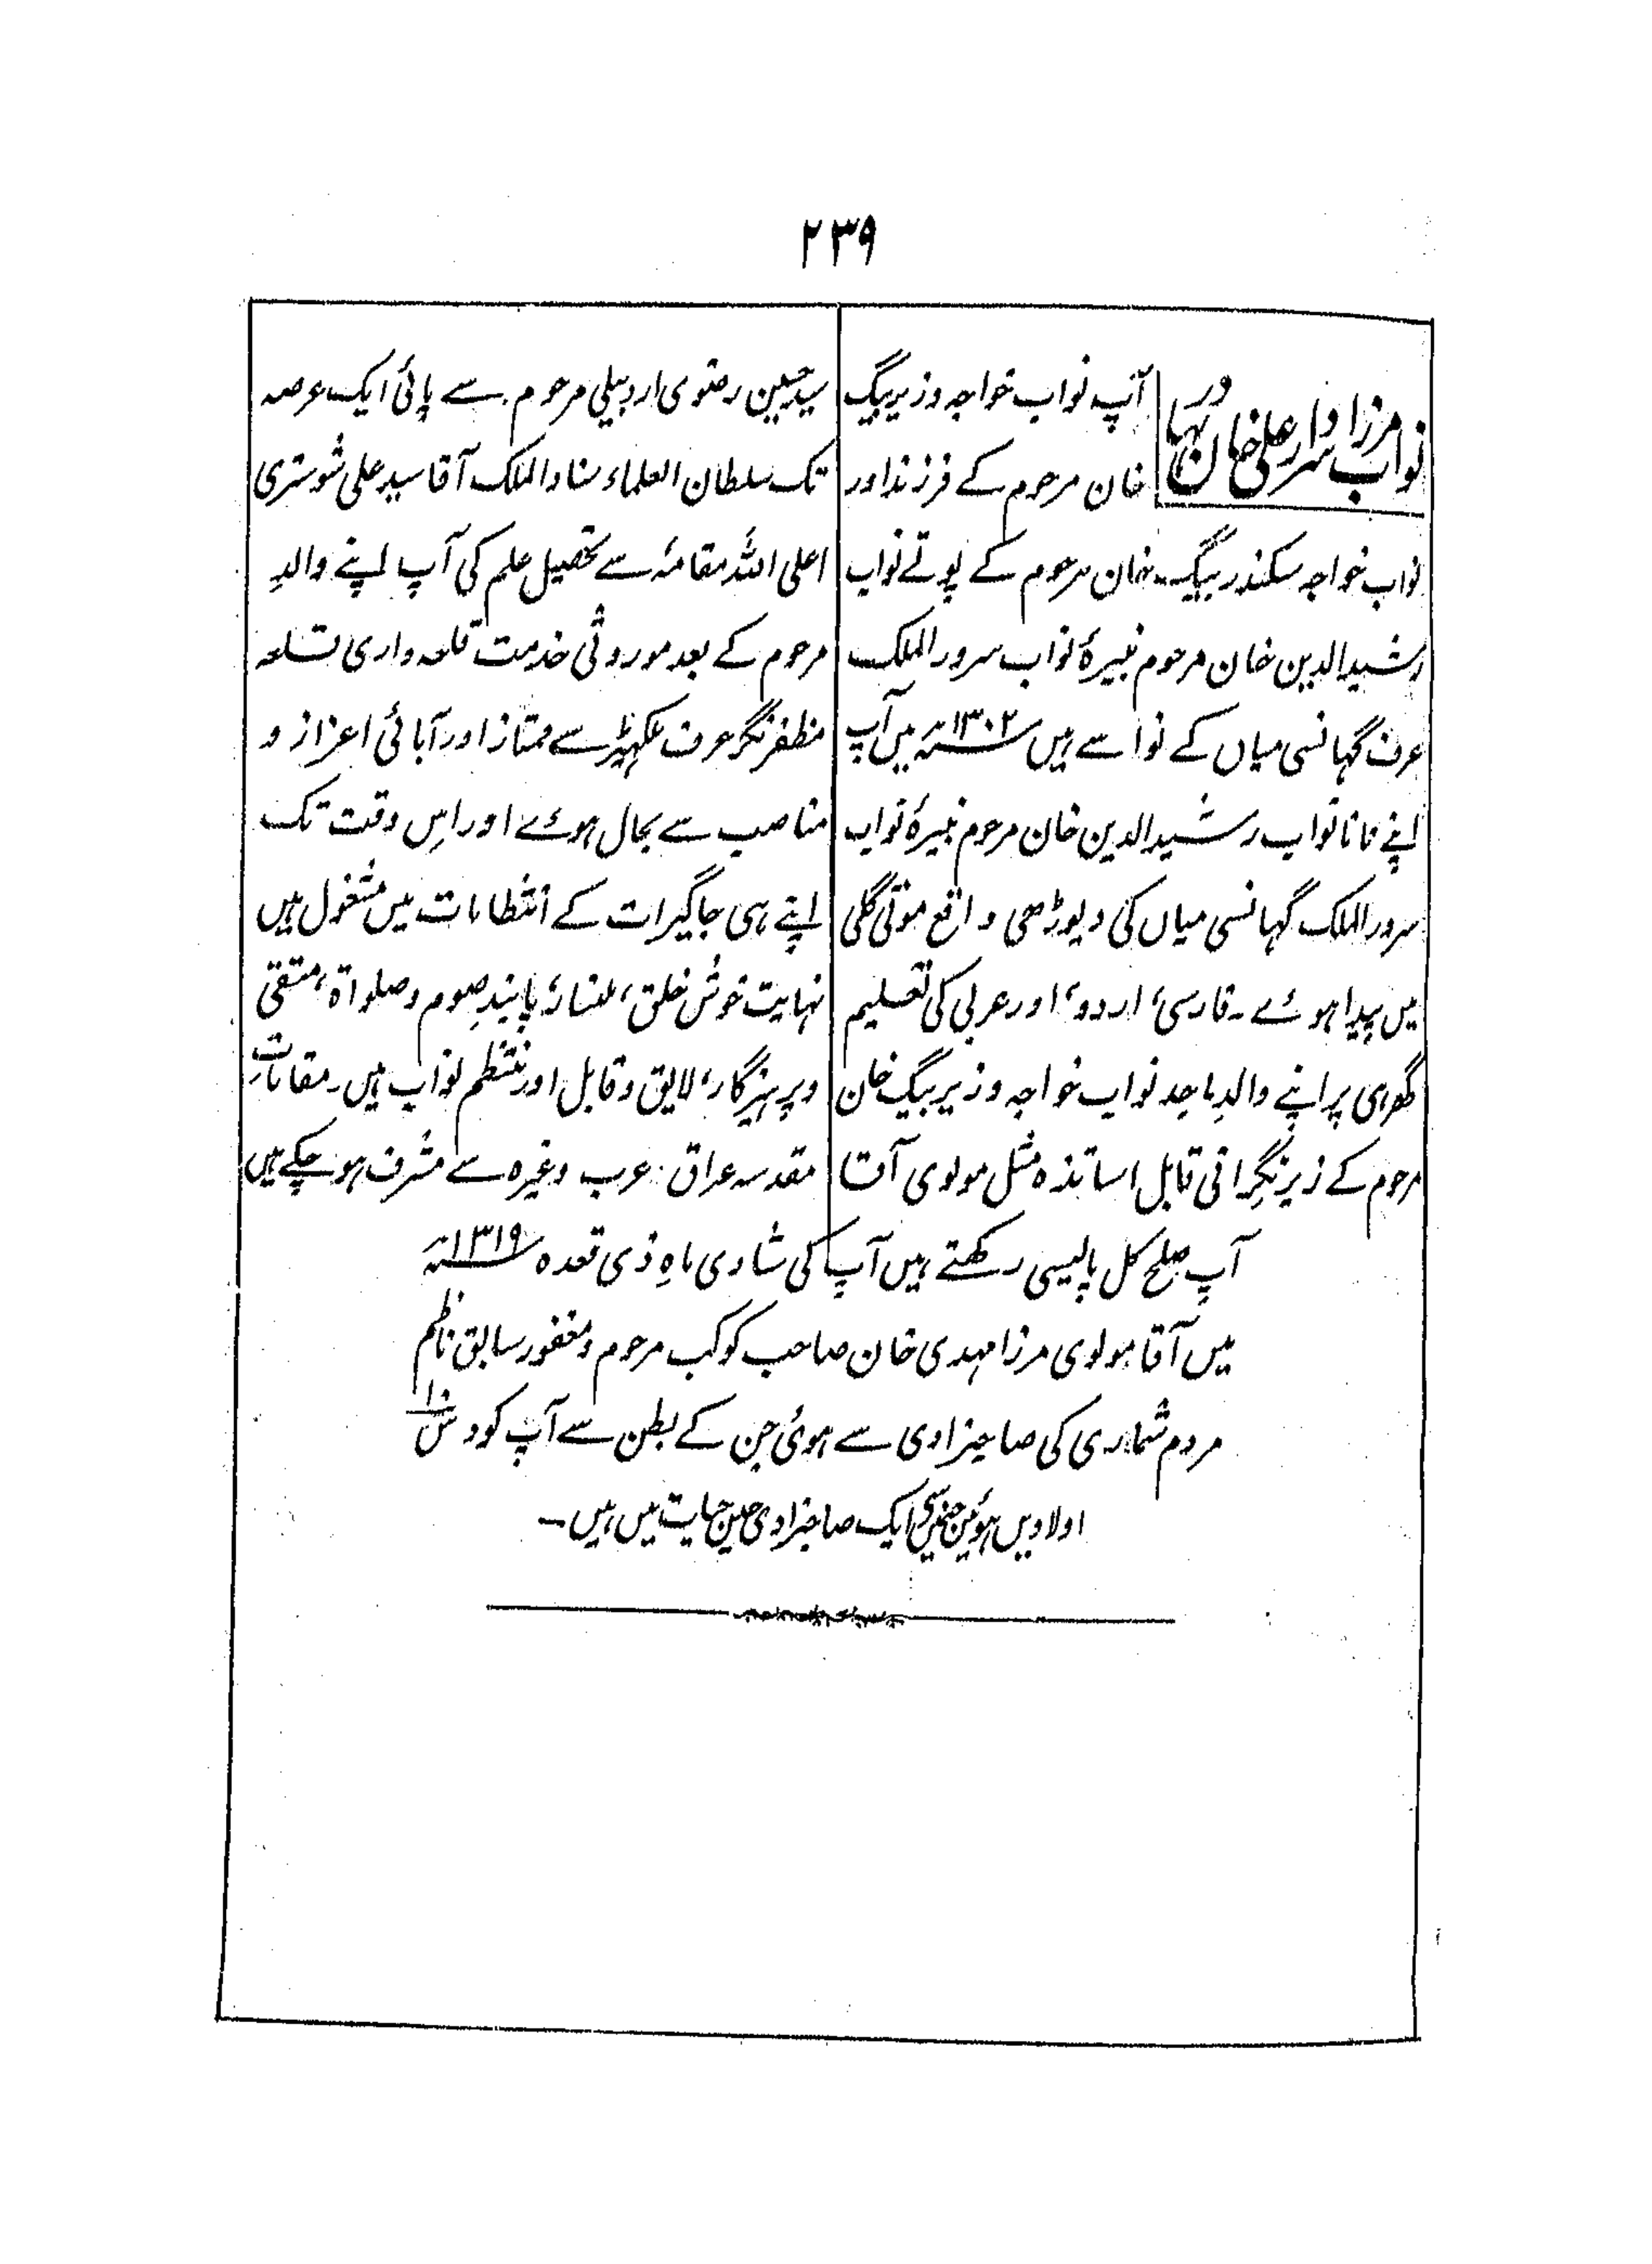 ۲۳۹
نواب مرزا سردار علی خان بہادر
آپ نواب خواجہ وزیر بیگ
خان مرحوم کے فرزند اور
نواب خواجہ سکندر بیگ خان مرحوم کے پوتے نواب
رشید الدین خان مرحوم نبیرۂ نواب سرور الملک
عرف گہانسی میاں کے نواسے ہیں ۱۳۰۲؁ میں آپ
اپنے نانا نواب رشید الدین خان مرحوم نبیرۂ نواب
سرور الملک گہانسی میاں کی دیوڑھی واقع موتی گلی
میں پیدا ہوئے ۔ فارسی، اردو، اور عربی کی تعلیم
گھر ہی پر اپنے والدِ ماجد نواب خواجہ وزیر بیگ خان
مرحوم کے زیر نگرانی قابل اساتذہ مثل مولوی آقا
سید حسین رضوی اردبیلی مرحوم سے پائی ایک عرصہ
تک سلطان العلماء سناد الملک آقا سید علی شوستری
اعلی اللہ مقامہٗ سے تحصیل علم کی آپ اپنے والدِ
مرحوم کے بعد موروثی خدمت قلعہ داری قلعہ
مظفر نگر عرف سے ممتاز اور آبائی اعزاز و
مناصب سے بحال ہوئے اور اِس وقت تک
اپنے ہی جاگیرات کے انتظامات میں مشغول ہیں
نہایت خوش خلق، ملنسار، پابندِ صوم و صلواۃ، متقی
و پرہیزگار، لایق و قابل اور منتظم نواب ہیں ۔ مقاماتِ
مقدسہ عراق ۔ عرب وغیرہ سے مشرف ہو چکے ہیں
آپ صلح کل پالیسی رکھتے ہیں آپ کی شادی ماہِ ذی قعدہ ۱۳۱۹؁
میں آقا مولوی مرزا مہدی خان صاحب کوکب مرحوم و مغفور سابق ناظم
مردم شماری کی صاحبزادی سے ہوئی جن کے بطن سے آپ کو دس ۱۰
اولادیں ہوئیں جنمیں سے ایک صاحبزادی حین حیات میں ہیں ۔